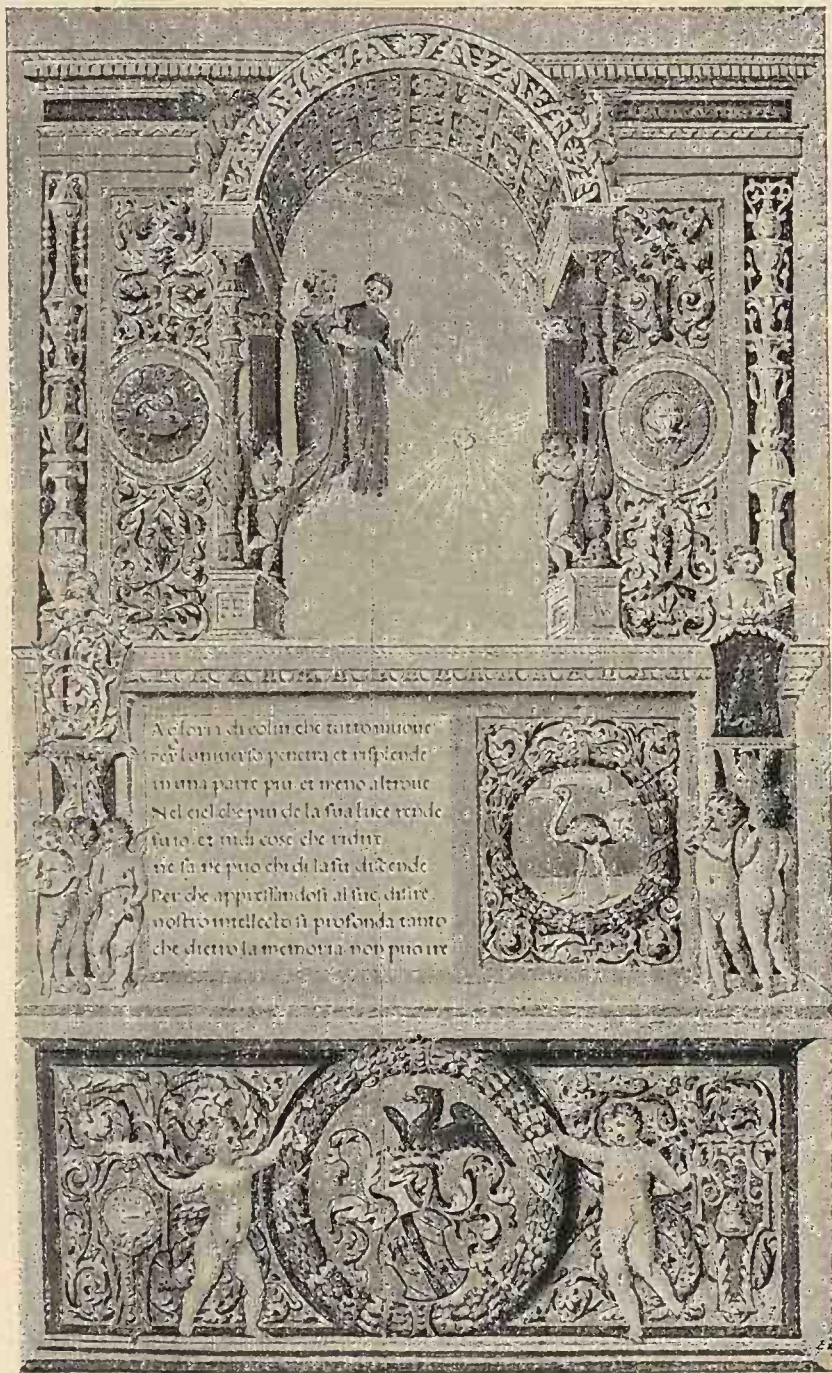 A gloria di colui che tutto muove
per luniverso penetra et risplende
in una parte piu et meno altroue
Nel ciel che piu de la sua luce rende
fu io et uidi cose che ridire
ne sa ne puo chi di la su discende
Per che appressandosi al suo disire
nostro intellecto si profonda tanto
che dietro la memoria non puo ire